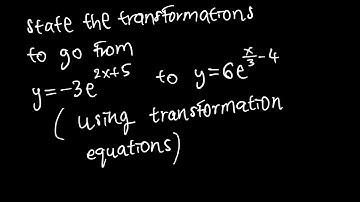 state the transformations
to go from
y=-3e^{2x+5} to y=6e^{\frac{x}{3}-4}
(using transformation
equations)